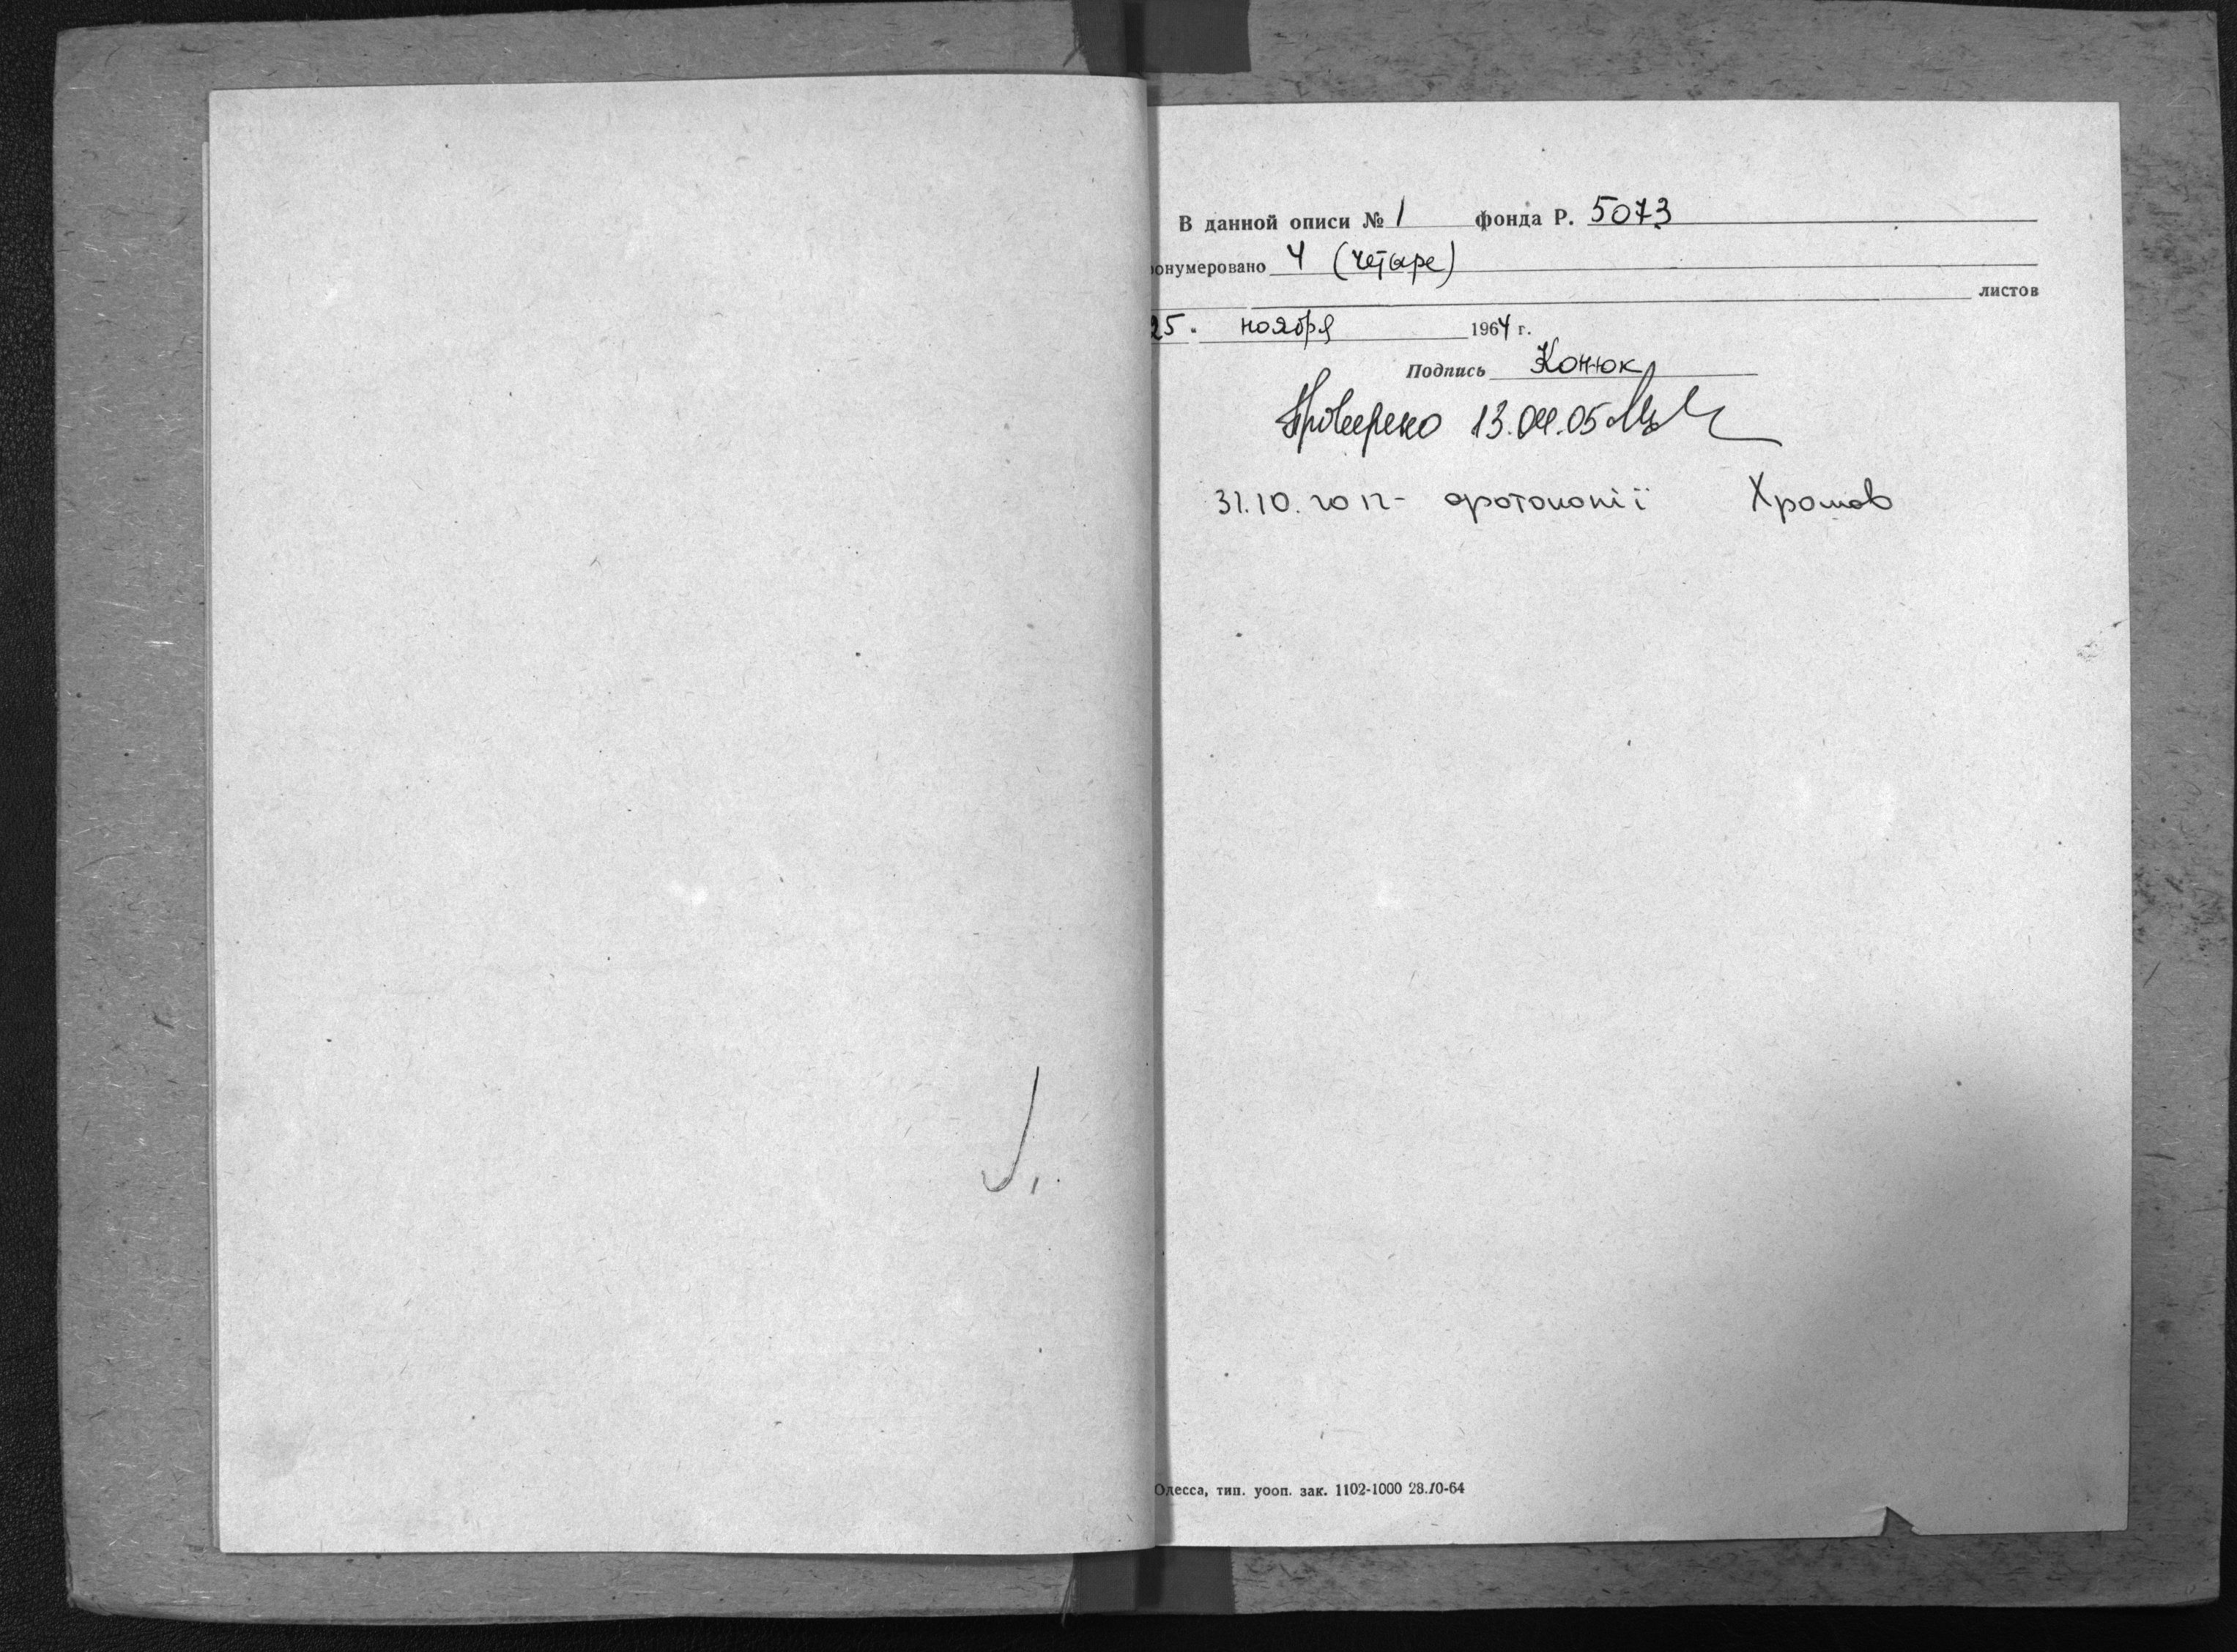 В данной описи № 1 фонда Р. 5073
ронумеровано 4 (четыре)
листов
25. ноября 1964 г.
Подпись Конюк
Проверено 13.04.05
31.10.2012- фотокопії Хромов
Одесса, тип. уооп. зак. 1102-1000 28.10-64